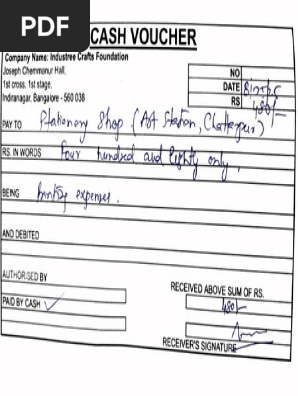 PDF
CASH VOUCHER
Company Name: Industree Crafts Foundation
Joseph Chemmanur Hall,
1st cross, 1st stage,
Indiranagar, Bangalore - 560 038
NO
DATE
RS 480/-
PAY TO Stationary Shop (
RS. IN WORDS Four hundred and Eighty only.
BEING expenses.
AND DEBITED
AUTHORISED BY
PAID BY CASH ✓
RECEIVED ABOVE SUM OF RS.
480/-
RECEIVER'S SIGNATURE